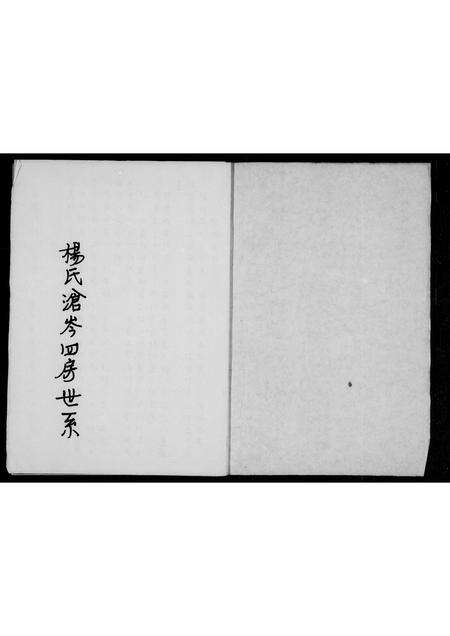 楊氏滄岑四房世系